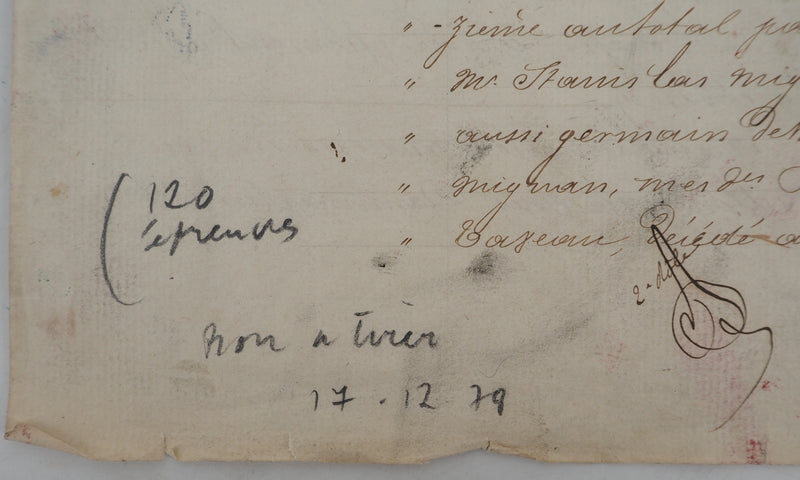 " - zième autotal po
" Mr. Stanislas Mig
" aussi germain de M
" Mignan, mes des
" Tazeau, décédé a
2e rôle
120
épreuves
non a tirer
17 . 12 79